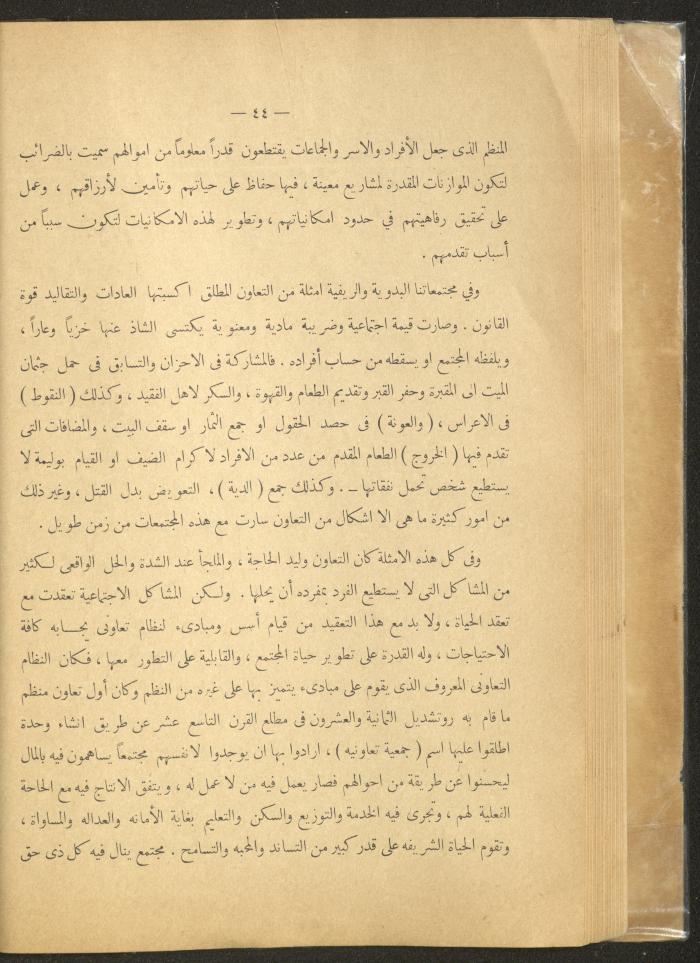 — ٤٤ —
المنظم الذى جعل الأفراد والاسر والجماعات يقتطعون قدراً معلوماً من اموالهم سميت بالضرائب
لتكون الموازنات المقدرة لمشاريع معينة ، فيها حفاظ على حياتهم وتأمين لأرزاقهم ، وعمل
على تحقيق رفاهيتهم في حدود امكانياتهم ، وتطوير لهذه الامكانيات لتكون سبباً من
أسباب تقدمهم .
وفي مجتمعاتنا البدوية والريفية امثلة من التعاون المطلق اكسبتها العادات والتقاليد قوة
القانون . وصارت قيمة اجتماعية وضريبة مادية ومعنوية يكتسى الشاذ عنها خزياً وعاراً ،
ويلفظه المجتمع او يسقطه من حساب أفراده . فالمشاركة فى الاحزان والتسابق فى حمل جثمان
الميت الى المقبرة وحفر القبر وتقديم الطعام والقهوة ، والسكر لاهل الفقيد ، وكذلك ( النقوط )
فى الاعراس ، ( والعونة ) فى حصد الحقول او جمع الثمار او سقف البيت ، والمضافات التى
تقدم فيها ( الخروج ) الطعام المقدم من عدد من الافراد لاكرام الضيف او القيام بوليمة لا
يستطيع شخص تحمل نفقاتها ــ . وكذلك جمع ( الدية ) ، التعويض بدل القتل ، وغير ذلك
من امور كثيرة ما هى الا اشكال من التعاون سارت مع هذه المجتمعات من زمن طويل .
وفى كل هذه الامثلة كان التعاون وليد الحاجة ، والملجأ عند الشدة والحل الواقعى لكثير
من المشاكل التى لا يستطيع الفرد بمفرده أن يحلها . ولكن المشاكل الاجتماعية تعقدت مع
تعقد الحياة ، ولا بد مع هذا التعقيد من قيام أسس ومبادىء لنظام تعاونى يجابه كافة
الاحتياجات ، وله القدرة على تطوير حياة المجتمع ، والقابلية على التطور معها ، فكان النظام
التعاونى المعروف الذى يقوم على مبادىء يتميز بها على غيره من النظم وكان أول تعاون منظم
ما قام به روتشديل الثمانية والعشرون فى مطلع القرن التاسع عشر عن طريق انشاء وحدة
اطلقوا عليها اسم ( جمعية تعاونيه ) ، ارادوا بها ان يوجدوا لانفسهم مجتمعاً يساهمون فيه بالمال
ليحسنوا عن طريقة من احوالهم فصار يعمل فيه من لا عمل له ، ويتفق الانتاج فيه مع الحاحة
الفعلية لهم ، وتجرى فيه الخدمة والتوزيع والسكن والتعليم بغاية الأمانه والعداله والمساواة ،
وتقوم الحياة الشريفه على قدر كبير من التساند والمحبه والتسامح . مجتمع ينال فيه كل ذى حق